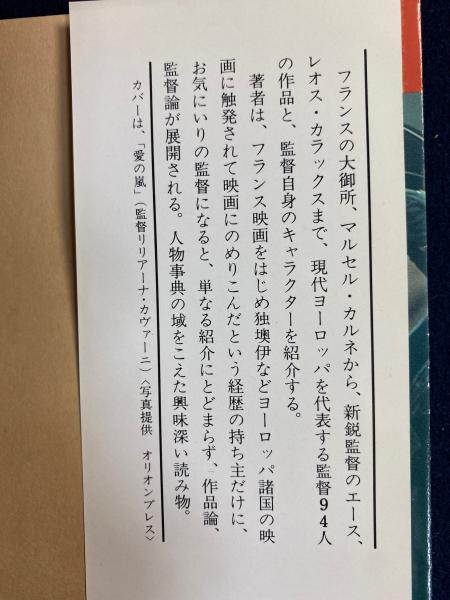 フランスの大御所、マルセル・カルネから、新鋭監督のエース、
レオス・カラックスまで、現代ヨーロッパを代表する監督94人
の作品と、監督自身のキャラクターを紹介する。
著者は、フランス映画をはじめ独墺伊などヨーロッパ諸国の映
画に触発されて映画にのめりこんだという経歴の持ち主だけに、
お気にいりの監督になると、単なる紹介にとどまらず、作品論、
監督論が展開される。人物事典の域をこえた興味深い読み物。
カバーは、「愛の嵐」（監督リリアーナ・カヴァーニ）〈写真提供　オリオンプレス〉